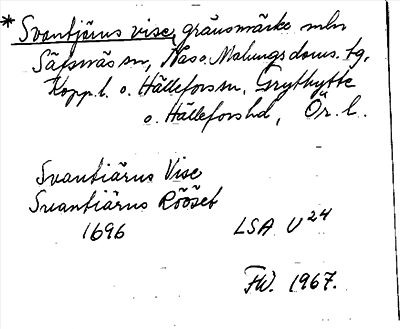 * Svantjärns vise, gränsmärke mln
Säfsnäs sn, Nas o. Malungs doms. tg,
Kopp. l. o. Hällefors sn, Grythytte
o. Hällefors hd, Ör. l.
Svantiärns Vise
Svantiärns Rööset
1696 LSA U 24
FW. 1967.